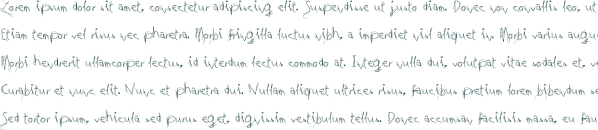 Lorem ipsum dolor sit amet, consectetur adipiscing elit. Suspendisse ut justo diam. Donec non convallis leo, ut
Etiam tempor vel risus nec pharetra. Morbi fringilla luctus nibh, a imperdiet nisl aliquet in. Morbi varius augu
Morbi hendrerit ullamcorper lectus, id interdum lectus commodo at. Integer nulla dui, volutpat vitae sodales et,
Curabitur et nunc elit. Nunc et pharetra dui. Nullam aliquet ultrices risus, faucibus pretium lorem bibendum se
Sed tortor ipsum, vehicula sed purus eget, dignissim vestibulum tellus. Donec accumsan facilisis massa, eu fau